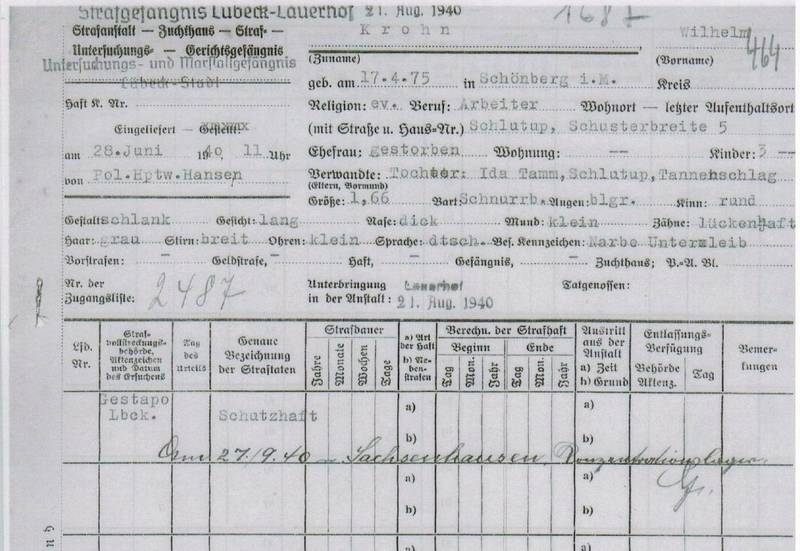 Strafgefängnis Lübeck-Lauerhof 21. Aug. 1940 1687
Strafanstalt — Zuchthaus — Straf-
Untersuchungs- — Gerichtsgefängnis
Untersuchungs- und Marstallgefängnis
Lübeck-Stadt
Krohn Wilhelm 464
(Zuname) (Vorname)
geb. am 17.4.75 in Schönberg i.M. Kreis
Haft K. Nr.
Religion: ev. Beruf: Arbeiter Wohnort — letzter Aufenthaltsort
Eingeliefert — Gestellt:
(mit Straße u. Haus-Nr.) Schlutup, Schusterbreite 5
am 28.Juni 1940 11 Uhr
Ehefrau: gestorben Wohnung: -- Kinder: 3 --
von Pol.Hptw.Hansen
Verwandte: Tochter: Ida Tamm, Schlutup, Tannenschlag
(Eltern, Vormund)
Größe: 1,66 Bart: Schnurrb. Augen: blgr. Kinn: rund
Gestalt: schlank Gesicht: lang Nase: dick Mund: klein Zähne: lückenhaft
Haar: grau Stirn: breit Ohren: klein Sprache: dtsch. Bes. Kennzeichen: Narbe Unterleib
Vorstrafen: - Geldstrafe, - Haft, - Gefängnis, - Zuchthaus; P.-A. Bl.
Nr. der
Zugangsliste: 2487
Unterbringung Lauerhof
in der Anstalt: 21. Aug. 1940
Tatgenossen:
Lfd. Nr.
Straf-
vollstreckungs-
behörde,
Aktenzeichen
und Datum
des Ersuchens
Tag
des
Urteils
Genaue
Bezeichnung
der Straftaten
Strafdauer
Jahre Monate Wochen Tage
a) Art
der Haft
b) Ne-
ben-
strafen
Berechn. der Strafhaft
Beginn Ende
Tag Mon. Jahr Tag Mon. Jahr
Austritt
aus der
Anstalt
a) Zeit
b) Grund
Entlassungs-
Verfügung
Behörde Tag
Aktenz.
Bemer-
kungen
Gestapo a) a)
Lbck. Schutzhaft
b) b)
27.9.40 — Sachsenhausen, Konzentrationslager.
a) a)
b) b)
a) a)